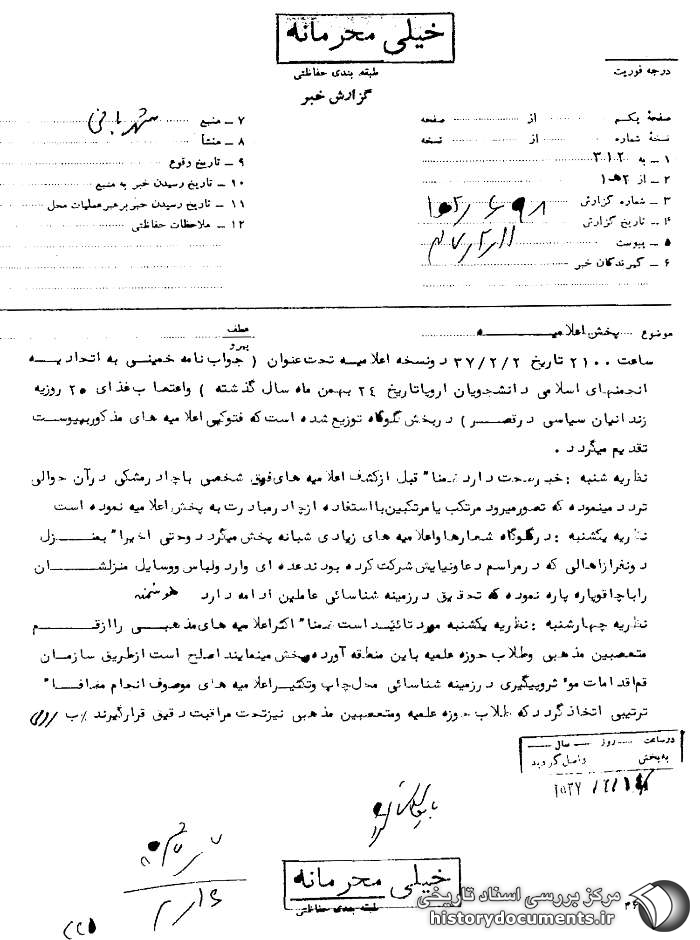 خیلی محرمانه
طبقه بندی حفاظتی
گزارش خبر
درجه فوریت
صفحهٔ یکم از صفحه
نسخهٔ شماره از نسخه
۱ ـ به ۳۱۲
۲ ـ از ۲هـ۱
۳ ـ شماره گزارش
۴ ـ تاریخ گزارش
۵ ـ پیوست
۶ ـ گیرندگان خبر
۷ ـ منبع
۸ ـ منشأ
۹ ـ تاریخ وقوع
۱۰ ـ تاریخ رسیدن خبر به منبع
۱۱ ـ تاریخ رسیدن خبر برهبر عملیات محل
۱۲ ـ ملاحظات حفاظتی
موضوع پخش اعلامیه
عطف
پیرو
ساعت ۲۱۰۰ تاریخ ۳۷/۲/۲ دونسخه اعلامیه تحت عنوان ( جواب نامه خمینی به اتحادیه
انجمنهای اسلامی دانشجویان اروپا تاریخ ۲۴ بهمن ماه سال گذشته ) و اعتصاب غذای ۲۵ روزیه
زندانیان سیاسی در قصر ) دربخش گلوگاه توزیع شده است که فتوکپی اعلامیه های مذکور بپیوست
تقدیم میگردد .
نظریه شنبه : خبر صحت دارد ضمنا" قبل از کشف اعلامیه های فوق شخصی با چادر مشکی در آن حوالی
تردد مینموده که تصور میرود مرتکب یا مرتکبین با استفاده از چادر مبادرت به پخش اعلامیه نموده است
نظریه یکشنبه : در گلوگاه شعارها و اعلامیه های زیادی شبانه پخش میگردد و حتی اخیرا" بمنزل
دونفر از اهالی که در مراسم دعا و نیایش شرکت کرده بودند عده ای وارد و لباس و وسایل منزلشان
را با چاقو پاره پاره نموده که تحقیق در زمینه شناسائی عاملین ادامه دارد هوشمند
نظریه چهارشنبه : نظریه یکشنبه مورد تائید است ضمنا" اکثر اعلامیه های مذهبی را از قم
متعصبین مذهبی و طلاب حوزه علمیه باین منطقه آورده و پخش مینمایند اصلح است از طریق سازمان
قم اقدامات موثر و پیگیری در زمینه شناسائی محل چاپ و تکثیر اعلامیه های موصوف انجام مضافا"
ترتیبی اتخاذ گردد که طلاب حوزه علمیه و متعصبین مذهبی نیز تحت مراقبت دقیق قرار گیرند /ب
در ساعت روز سال
به بخش واصل گردید
خیلی محرمانه
طبقه بندی حفاظتی
مرکز بررسی اسناد تاریخی
historydocuments.ir